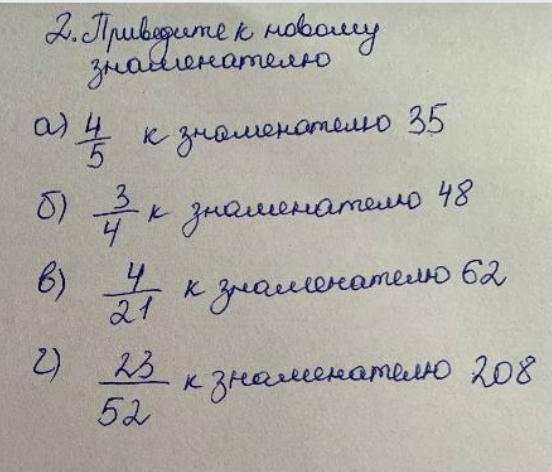 2. Приведите к новому
знаменателю
а) 4/5 к знаменателю 35
б) 3/4 к знаменателю 48
в) 4/21 к знаменателю 62
г) 23/52 к знаменателю 208